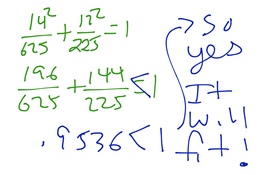 14²/625 + 12²/225 = 1
196/625 + 144/225 < 1
.9536 < 1
→ So
yes
It
will
fit!